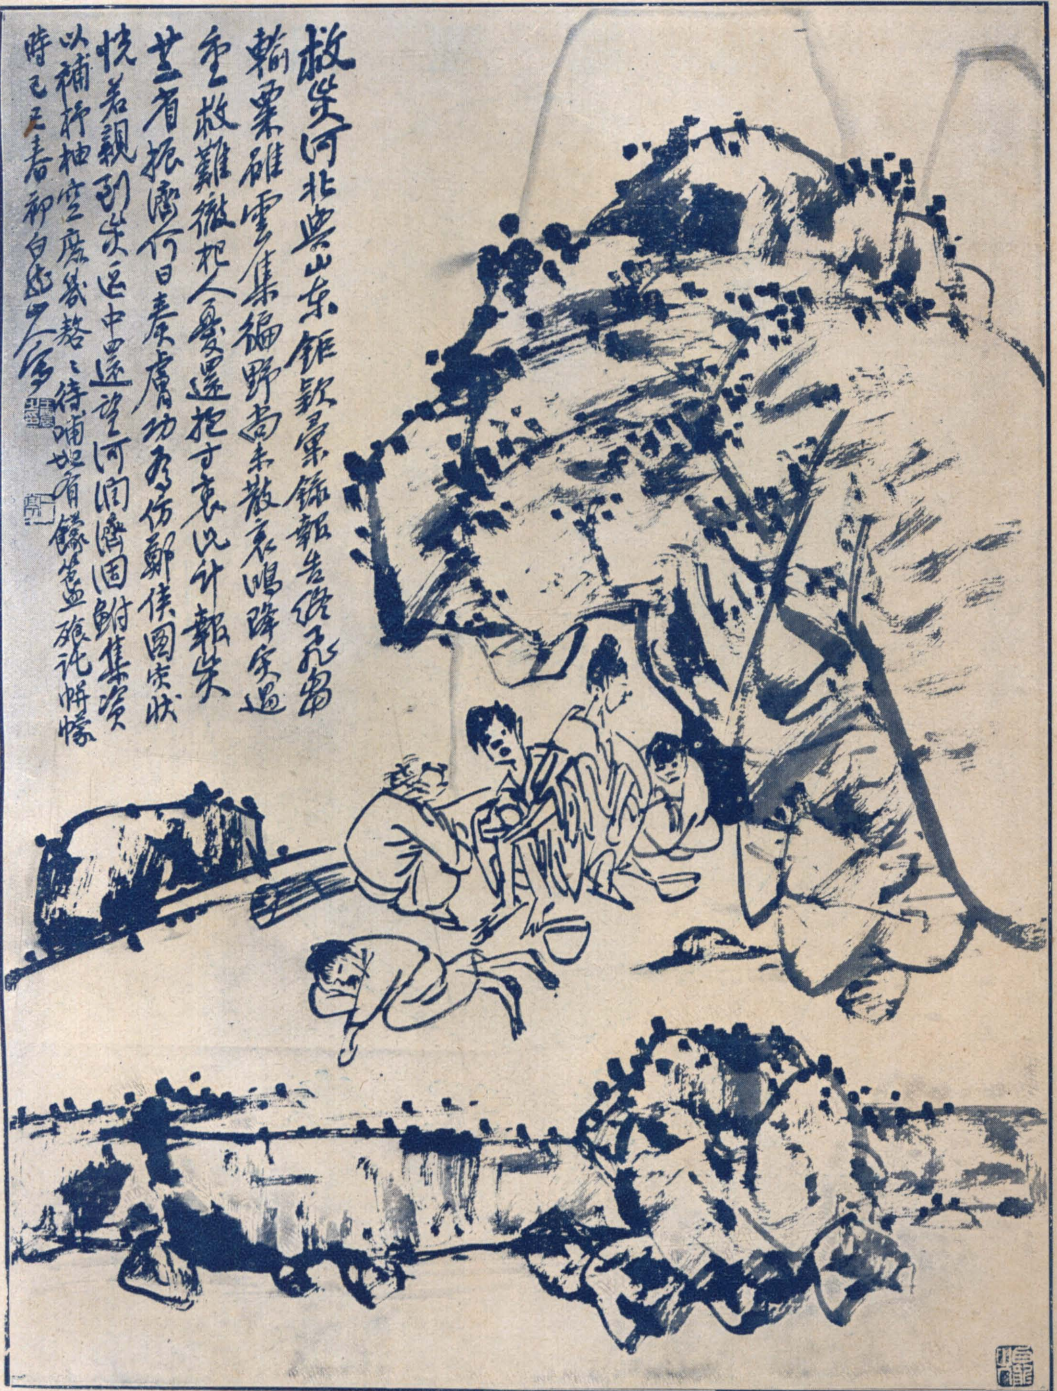 救災河北與山東鉅款彙錄報告終飛芻
輸粟雖雲集徧野尚未散哀鴻降災過
重救難徵杞人憂還抱寸衷以計報災
廿省振濟何日奏膚功為仿鄭俠圖災狀
恍若親到災區中還望河潤濟涸鮒集資
以補杼柚空庶幾嗸〻待哺者有饛簋飧詫帡幪
時己巳春初白龍山人寫